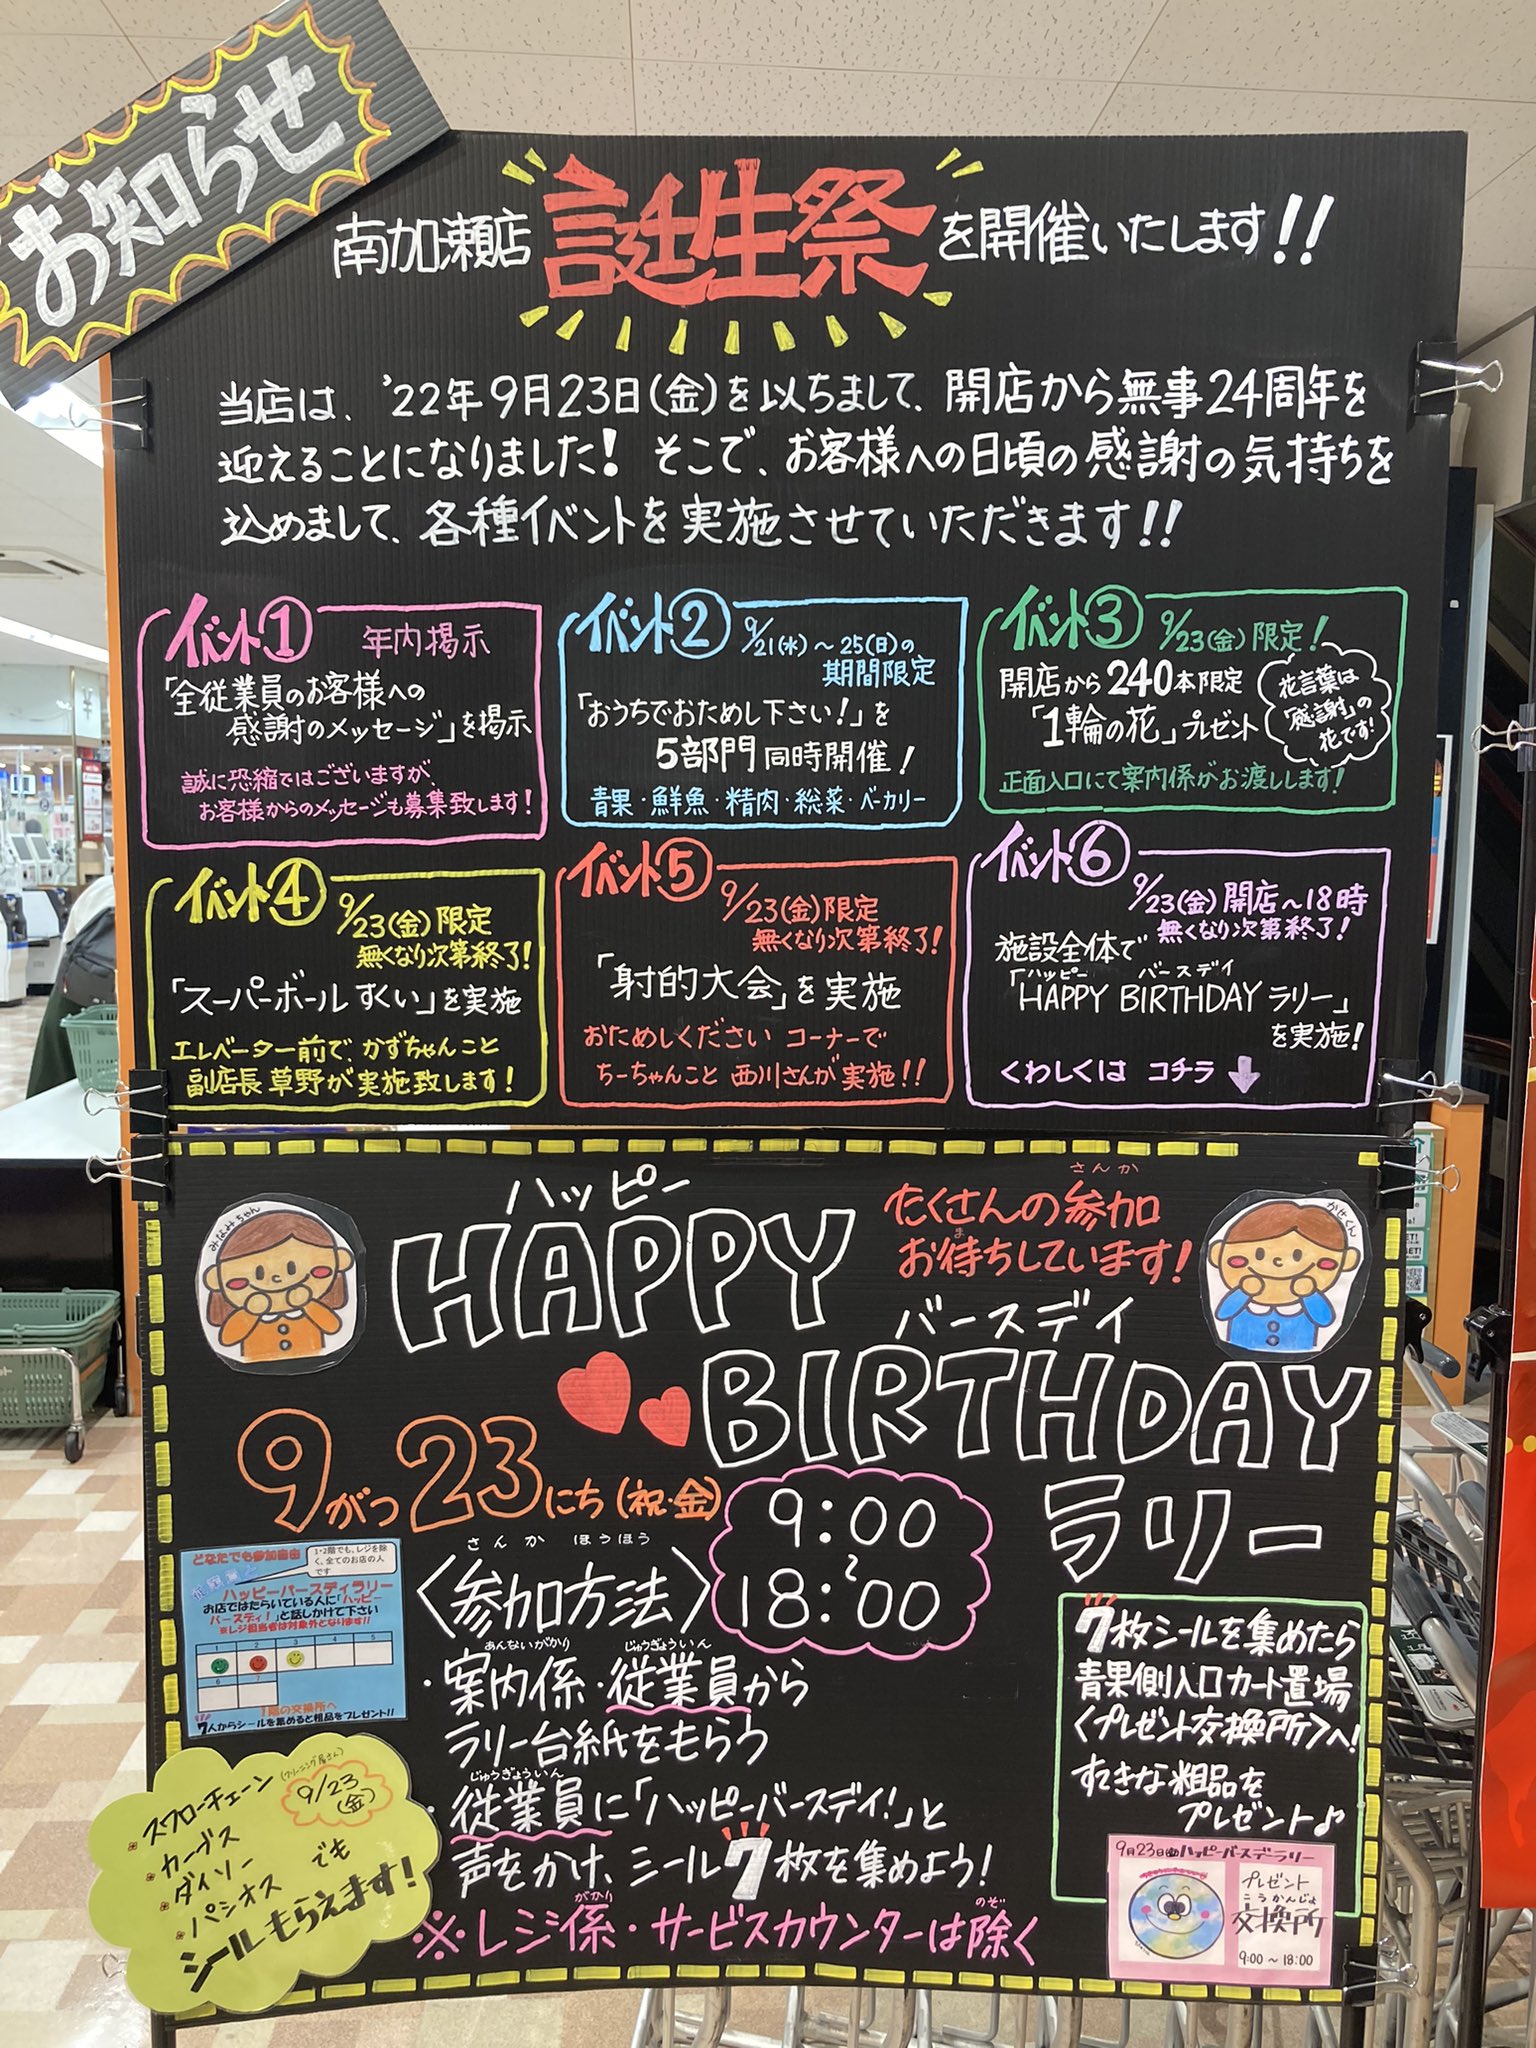 お知らせ
南加瀬店 誕生祭 を開催いたします!!
当店は、'22年9月23日(金)を以ちまして、開店から無事24周年を
迎えることになりました! そこで、お客様への日頃の感謝の気持ちを
込めまして、各種イベントを実施させていただきます!!
イベント① 年内掲示
「全従業員のお客様への
感謝のメッセージ」を掲示
誠に恐縮ではございますが、
お客様からのメッセージも募集致します!
イベント② 9/21(水)~25(日)の
期間限定
「おうちでおためし下さい!」を
5部門同時開催!
青果・鮮魚・精肉・総菜・ベーカリー
イベント③ 9/23(金)限定!
開店から240本限定
「1輪の花」プレゼント
花言葉は
「感謝」の
花です!
正面入口にて案内係がお渡しします!
イベント④ 9/23(金)限定
無くなり次第終了!
「スーパーボールすくい」を実施
エレベーター前で、かずちゃんこと
副店長 草野が実施致します!
イベント⑤ 9/23(金)限定
無くなり次第終了!
「射的大会」を実施
おためしください コーナーで
ちーちゃんこと 西川さんが実施!!
イベント⑥ 9/23(金)開店~18時
無くなり次第終了!
施設全体で
ハッピー バースデイ
「HAPPY BIRTHDAYラリー」
を実施!
くわしくは コチラ
みなみちゃん
ハッピー
HAPPY
さんか
たくさんの参加
ま
お待ちしています!
かせくん
バースデイ
BIRTHDAY
ラリー
9がつ23にち(祝・金)
9:00
~
18:00
どなたでも参加自由
1・2階でも、レジを除
く、全てのお店の人
です
従業員と
ハッピーバースディラリー
お店ではたらいている人に「ハッピー
バースディ!」と話しかけて下さい
※レジ担当者は対象外となります!!
1 2 3 4 5
6 7
1階の交換所へ
7人からシールを集めると粗品をプレゼント!!
さんか ほうほう
〈参加方法〉
あんないがかり じゅうぎょういん
・案内係・従業員から
ラリー台紙をもらう
じゅうぎょういん
・従業員に「ハッピーバースデイ!」と
声をかけ、シール7枚を集めよう!
がかり のぞ
※レジ係・サービスカウンターは除く
7枚シールを集めたら
青果側入口カート置場
〈プレゼント交換所〉へ!
すてきな粗品を
プレゼント♪
(クリーニング屋さん)
スワローチェーン
カーブス
ダイソー
パシオス
9/23
(金)
でも
シールもらえます!
9月23日(金)ハッピーバースデーラリー
プレゼント
こうかんじょ
交換所
9:00~18:00